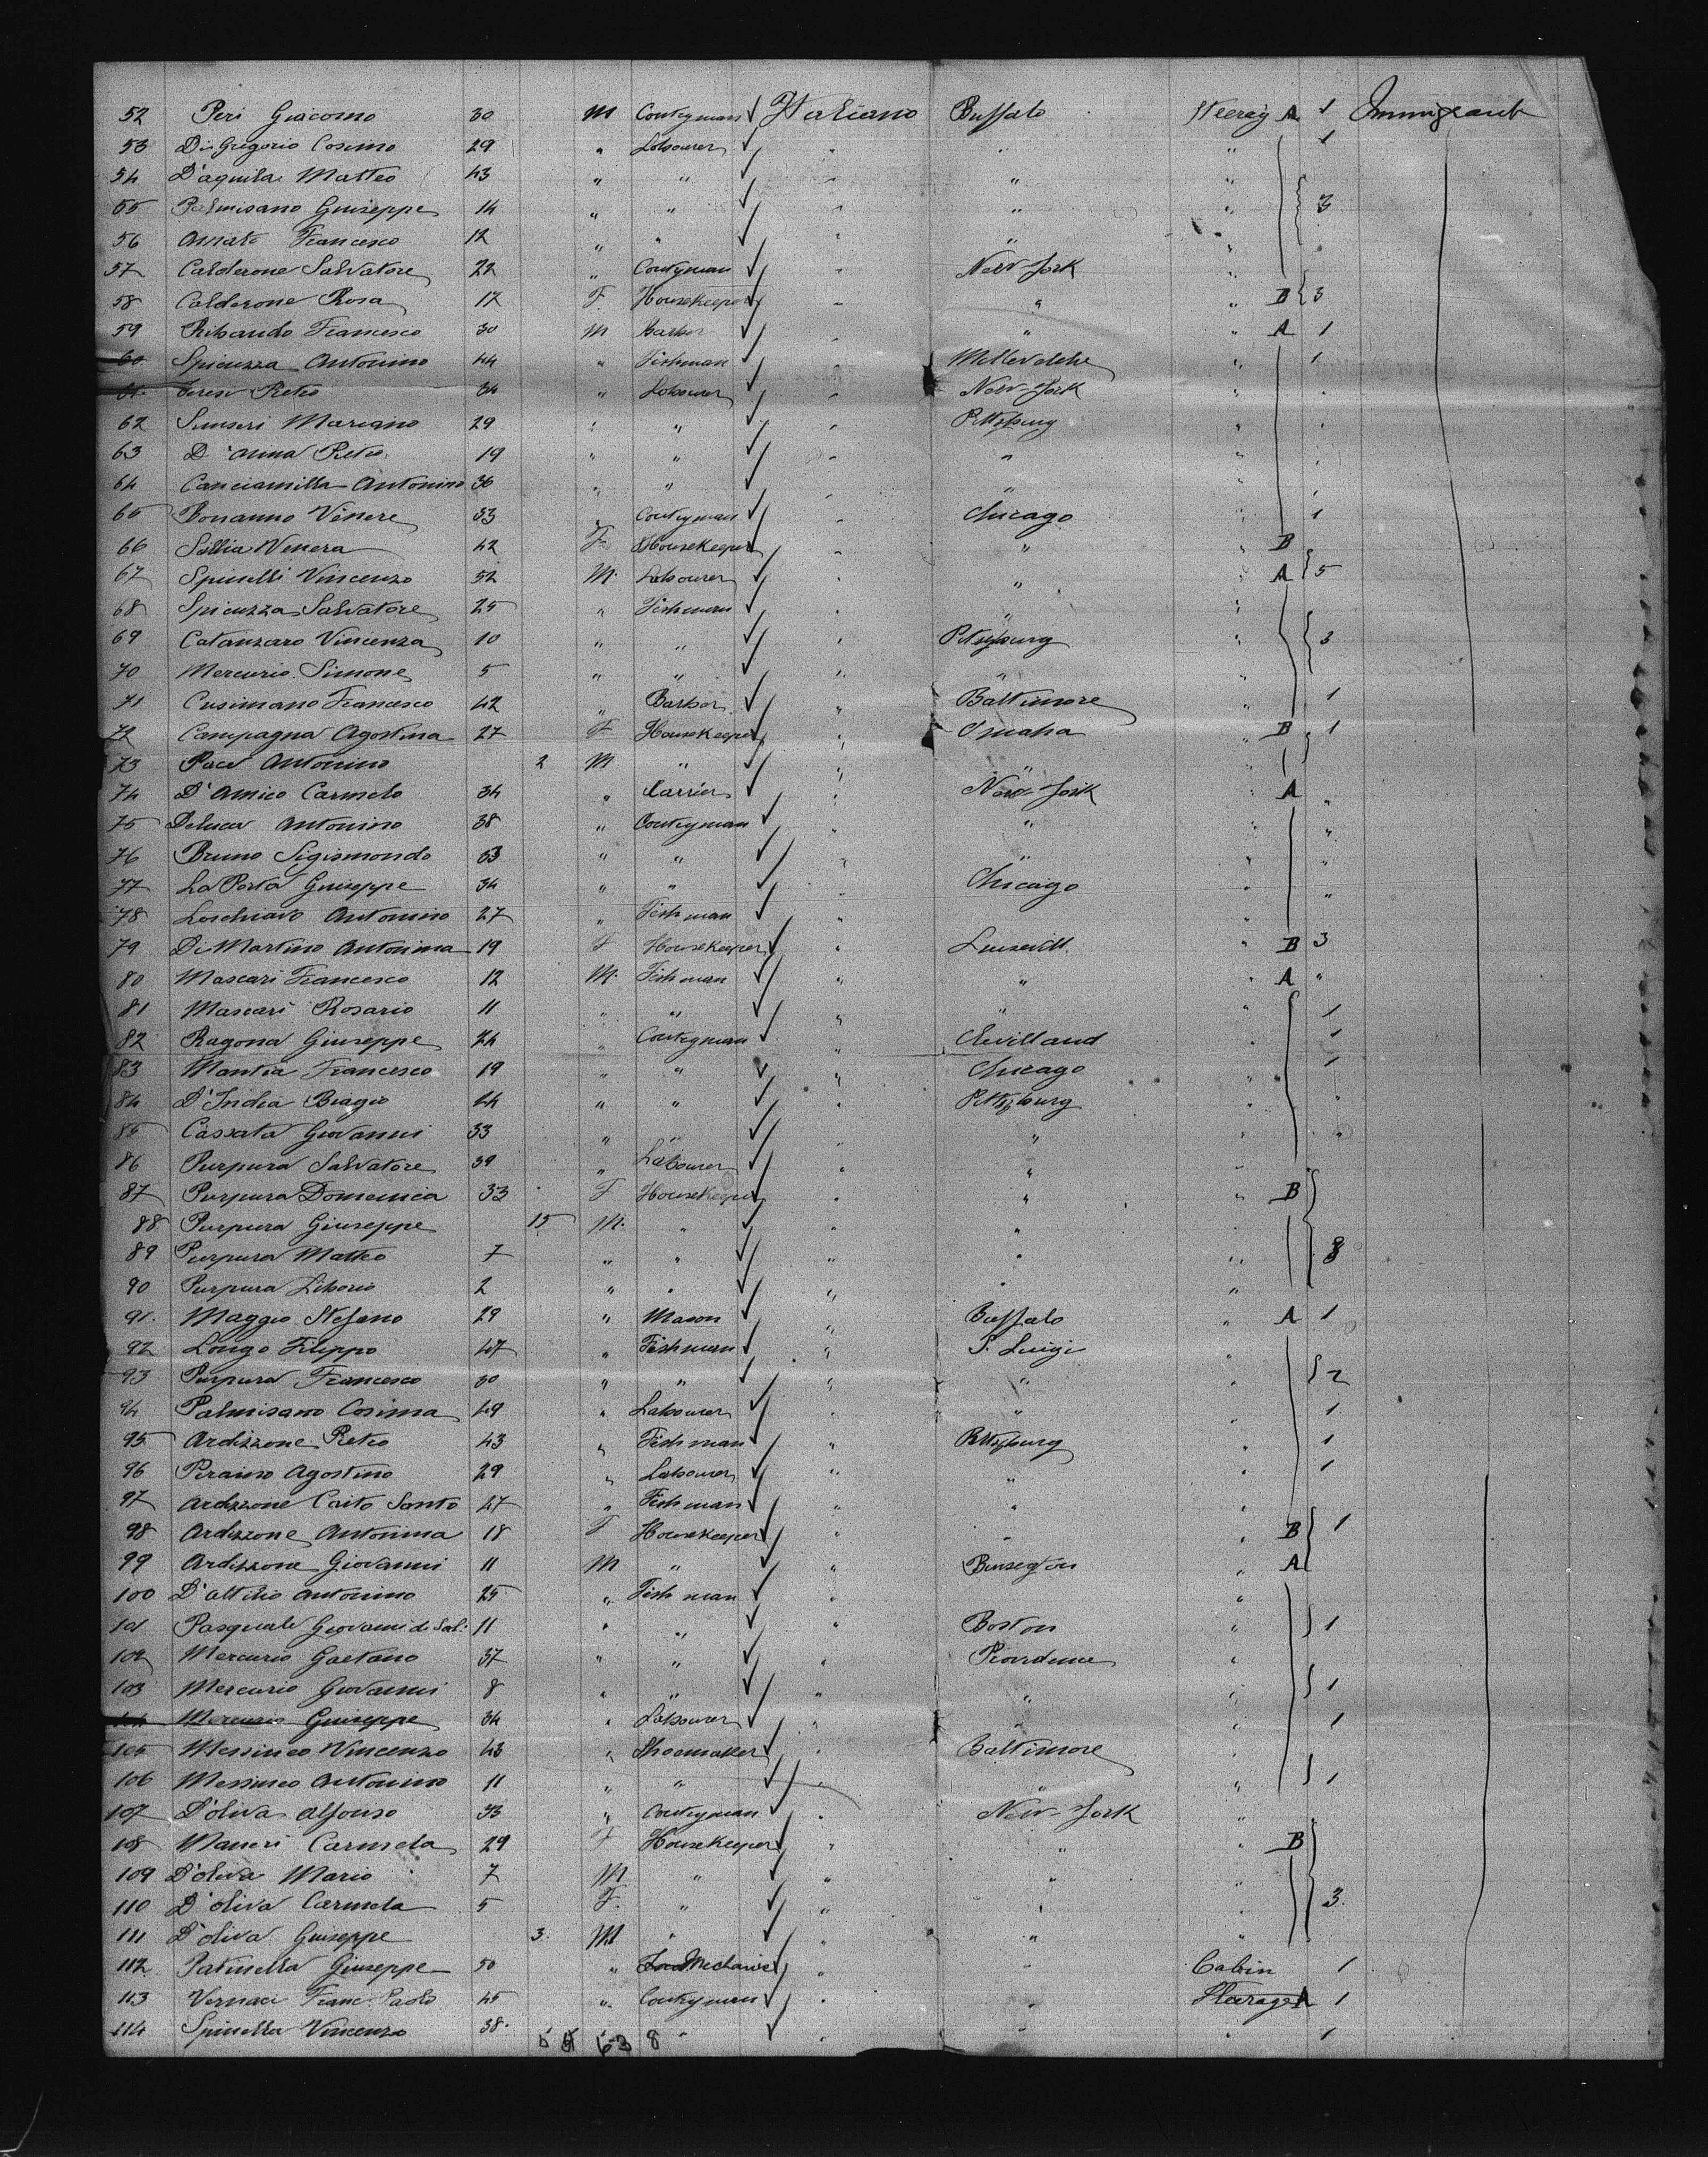 52 Peri Giacomo 30 M Contryman Italiano Buffalo Steerag A 1 Immigrant
53 Di Gregorio Cosimo 29 " Labourer " " " 1
54 D'aquila Matteo 43 " " " " "
55 Palmisano Giuseppe 14 " " " " " 3
56 Amato Francesco 12 " " " " "
57 Calderone Salvatore 22 " Contryman " New-York "
58 Calderone Rosa 17 F. Housekeeper " " " B 3
59 Ribaudo Francesco 30 M Barber " " " A 1
60 Spicuzza Antonino 44 " Fishman " " 1
61 Teresi Pietro 34 " Labourer " New-York "
62 Sunseri Mariano 29 " " " Pittsburg "
63 D'anna Pietro 19 " " " " "
64 Canciamilla Antonino 36 " " " " "
65 Bonanno Venere 33 " Contryman " Chicago " 1
66 Venera 42 F Housekeeper " " " B
67 Spinelli Vincenzo 52 M. Labourer " " " A 5
68 Spicuzza Salvatore 25 " Fishman " " "
69 Catanzaro Vincenza 10 " " " Pittsburg " 3
70 Mercurio Simone 5 " " " " "
71 Cusimano Francesco 42 " Barber " Baltimore " 1
72 Campagna Agostina 27 F Housekeeper " Omaha " B 1
73 Pace Antonino 2 M " " " "
74 D'Amico Carmelo 34 " Carrier " New-York " A "
75 Deluca Antonino 38 " Contryman " " " "
76 Bruno Sigismondo 53 " " " " " "
77 La Porta Giuseppe 34 " " " Chicago " "
78 Loschiavo Antonino 27 " Fishman " "
79 Di Martino Antonina 19 F Housekeeper " Luisevill " B 3
80 Mascari Francesco 12 M. Fishman " " " A "
81 Mascari Rosario 11 " " " " " 1
82 Ragona Giuseppe 24 " Contryman " Clevilland " 1
83 Mantia Francesco 19 " " " Chicago " 1
84 D'India Biagio 44 " " " Pittsburg " "
85 Cassata Giovanni 33 " " " " " "
86 Purpura Salvatore 39 " Labourer " " "
87 Purpura Domenica 33 F Housekeeper " " " B
88 Purpura Giuseppe 15 M. " " "
89 Purpura Matteo 7 " " " " "
90 Purpura Liborio 2 " " " " "
91. Maggio Stefano 29 " Mason " Buffalo " A 1
92 Longo Filippo 47 " Fishman " S. Luigi "
93 Purpura Francesco 30 " " " " " 2
94 Palmisano Cosima 49 " Labourer " " " 1
95 Ardizzone Pietro 43 " Fishman " Pittsburg " 1
96 Peraino Agostino 29 " Labourer " " " 1
97 Ardizzone Caito Santo 47 " Fishman " " "
98 Ardizzone Antonina 18 F Housekeeper " " " B 1
99 Ardizzone Giovanni 11 M " " " A
100 D'attilio Antonino 25 " Fishman " "
101 Pasquale Giovanni di Sal. 11 " " " Boston " 1
102 Mercurio Gaetano 37 " " " Providence "
103 Mercurio Giovanni 8 " " " " " 1
104 Mercurio Giuseppe 34 " Labourer " " " 1
105 Messineo Vincenzo 43 " Shoemaker " Baltimore "
106 Messineo Antonino 11 " " " " " 1
107 D'oliva Alfonso 33 " Contryman " New-York "
108 Maneri Carmela 29 F Housekeeper " " " B
109 D'oliva Mario 7 M " " " "
110 D'oliva Carmela 5 F. " " " " 3
111 D'oliva Giuseppe 3 M " " " "
112 Patinella Giuseppe 50 " Mechanic " " Cabin 1
113 Vernaci Franc. Paolo 45 " Contryman " " Steerage A 1
114 Spinella Vincenzo 38 " " " " 1
63 8